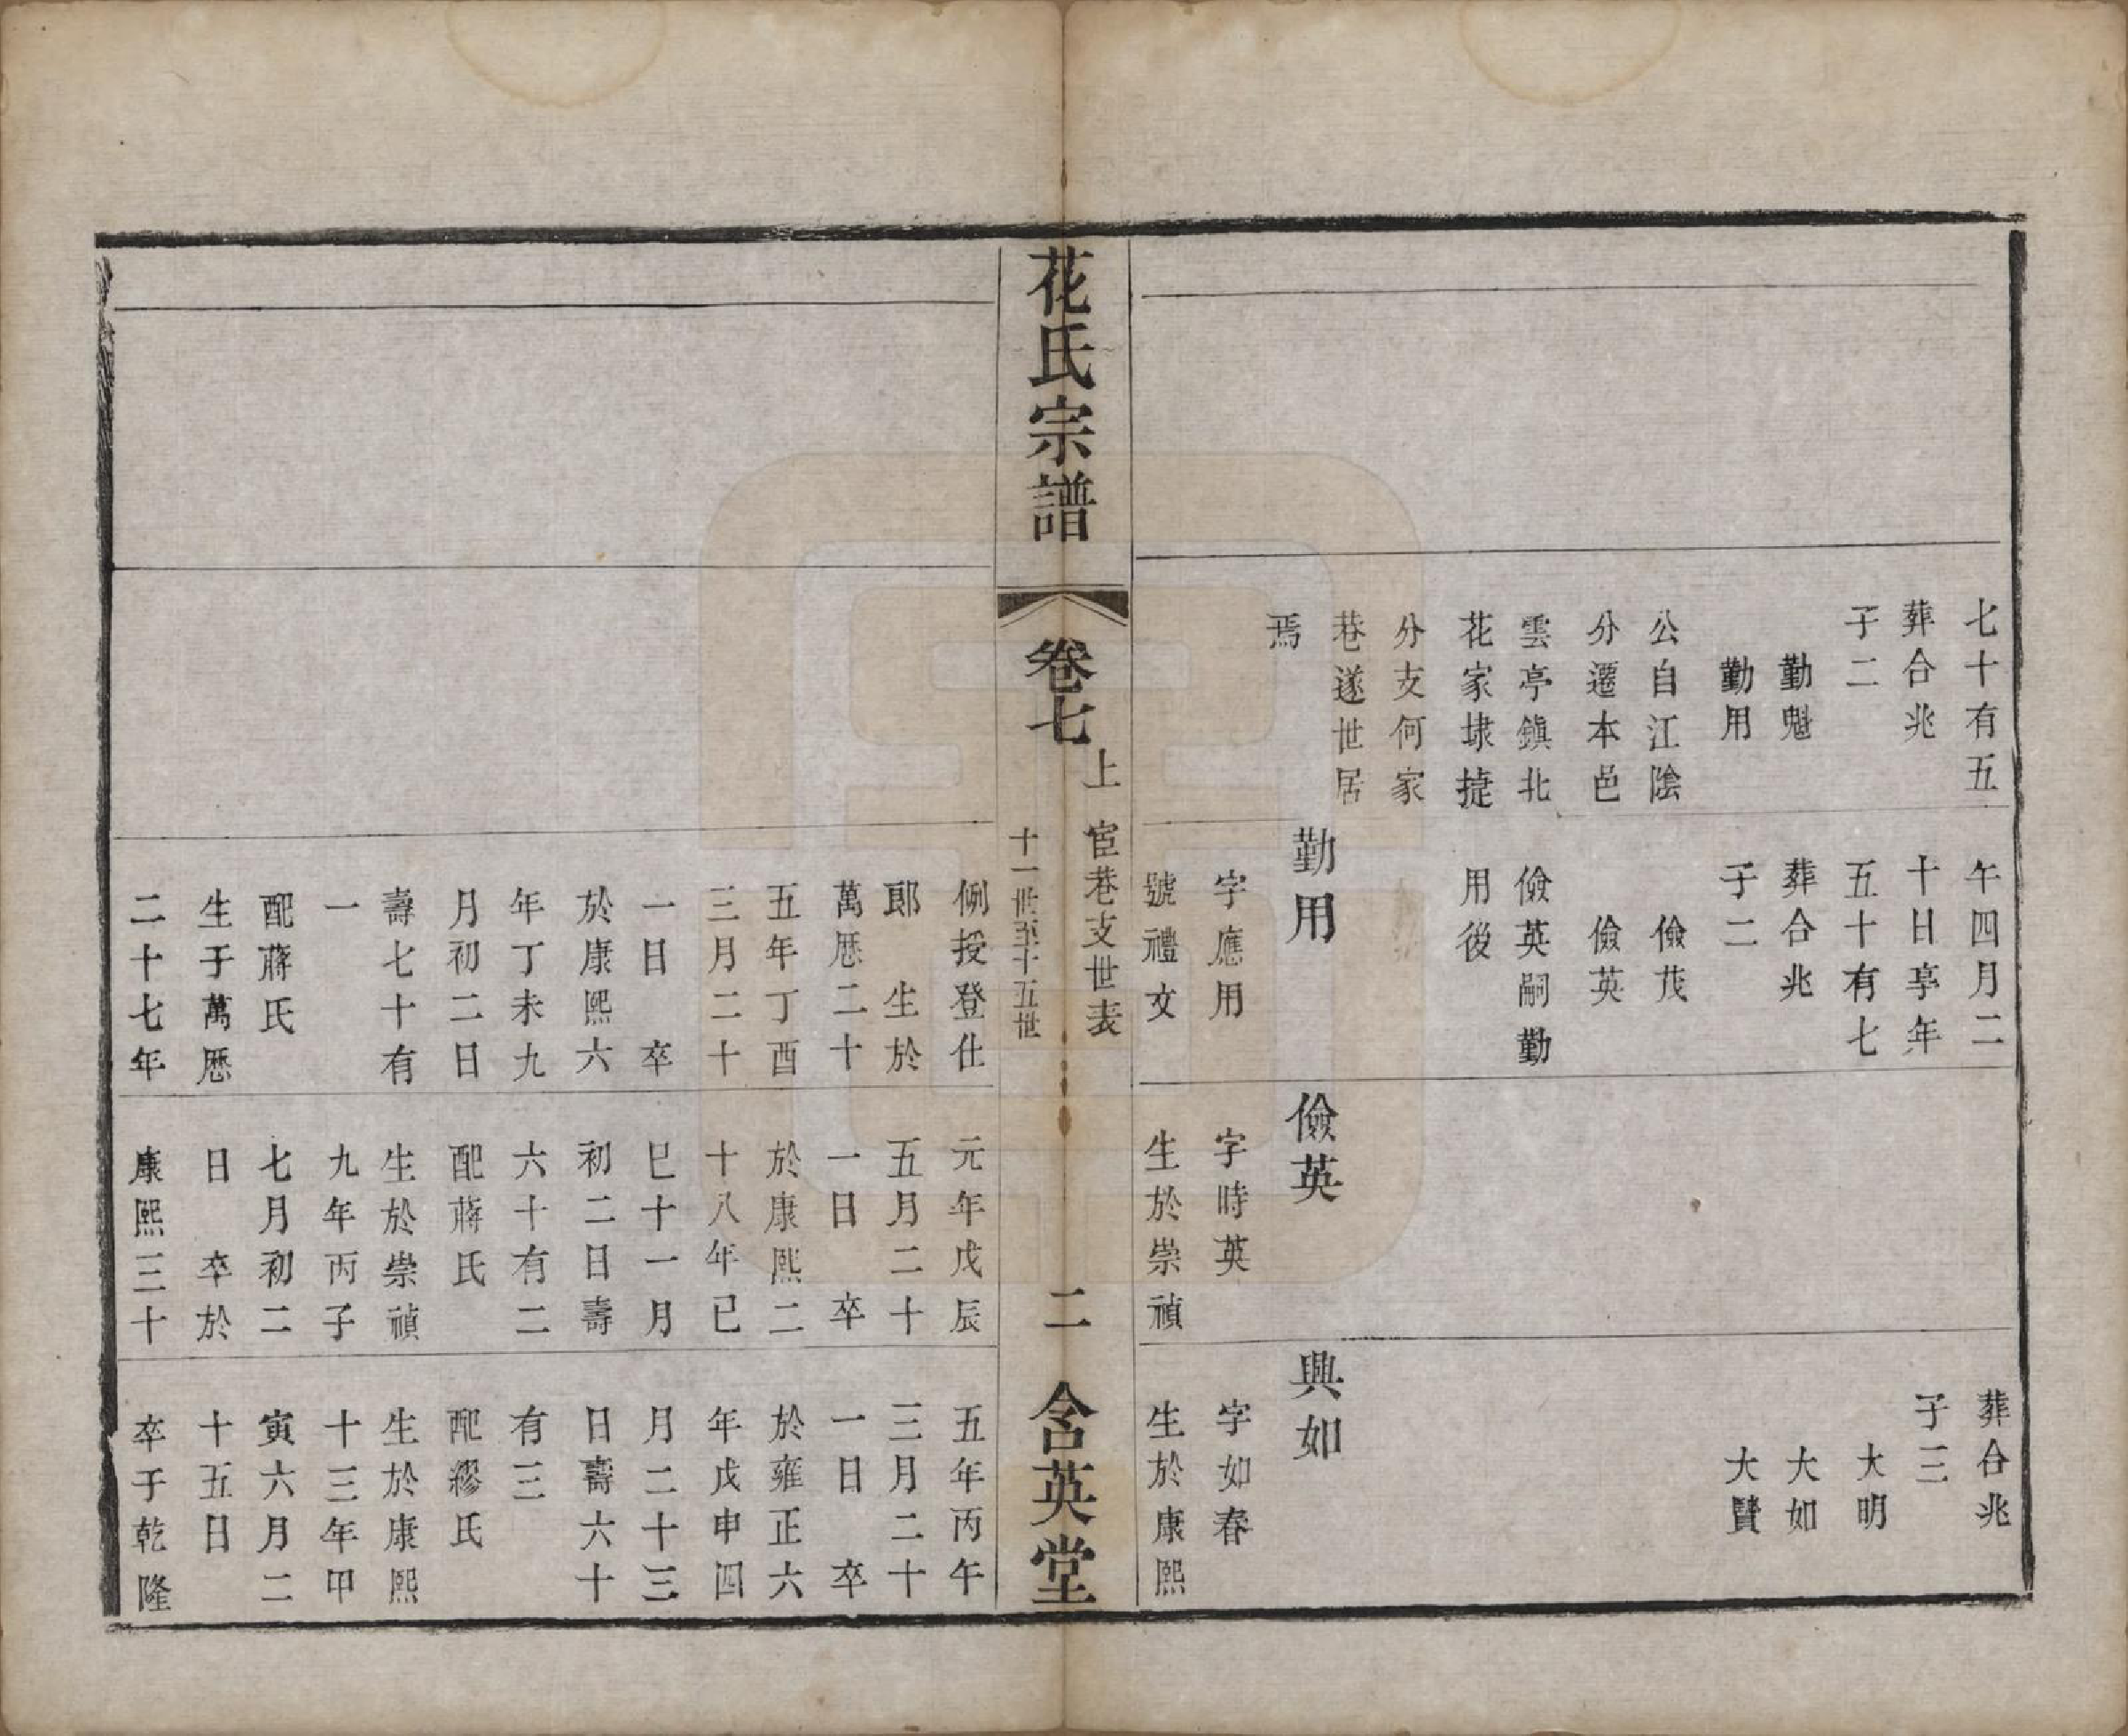 七十有五
葬合兆
子二
勤魁
勤用
公自江陰
分遷本邑
雲亭鎮北
花家埭捷
分支何家
巷遂世居
焉
午四月二
十日享年
五十有七
葬合兆
子二
儉茂
儉英
儉英嗣勤
用後
勤用
字應用
號禮文
儉英
字時英
生於崇禎
葬合兆
子三
大明
大如
大賢
興如
字如春
生於康熙
花氏宗譜
卷七
上
宦巷支世表
十一世至十五世
二
含英堂
例授登仕
郎 生於
萬厯二十
五年丁酉
三月二十
一日 卒
於康熙六
年丁未九
月初二日
壽七十有
一
配蔣氏
生于萬厯
二十七年
元年戊辰
五月二十
一日 卒
於康熙二
十八年已
巳十一月
初二日壽
六十有二
配蔣氏
生於崇禎
九年丙子
七月初二
日 卒於
康熙三十
五年丙午
三月二十
一日 卒
於雍正六
年戊申四
月二十三
日壽六十
有三
配繆氏
生於康熙
十三年甲
寅六月二
十五日
卒于乾隆